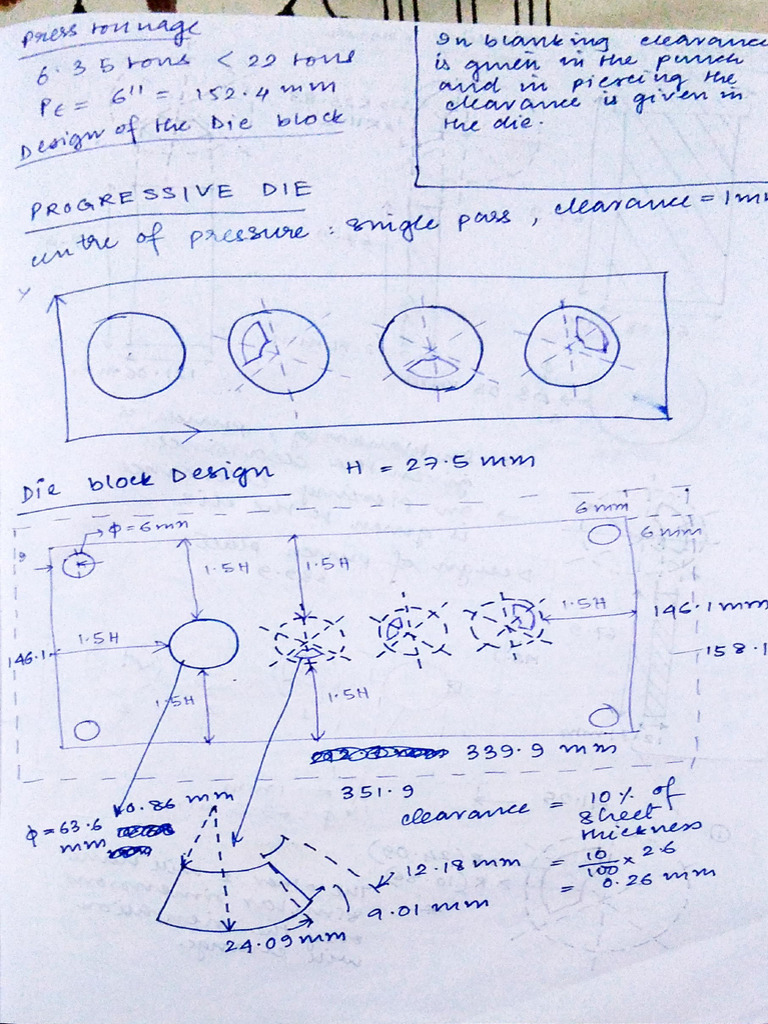 Press tonnage
6.35 tons < 22 tons
Pε = 6" = 152.4 mm
Design of the Die block
In blanking clearance
is given in the punch
and in piercing the
clearance is given in
the die.
PROGRESSIVE DIE
centre of pressure : single pass , clearance = 1m
Y
Die block Design H = 27.5 mm
φ = 6mm
6mm
6mm
1.5H
1.5H
1.5H
1.5H
146.1
146.1 mm
158.1
1.5H
1.5H
339.9 mm
351.9
clearance = 10% of
sheet
thickness
= 10/100 × 2.6
= 0.26 mm
φ = 63.6
mm
0.86 mm
12.18 mm
9.01 mm
24.09 mm